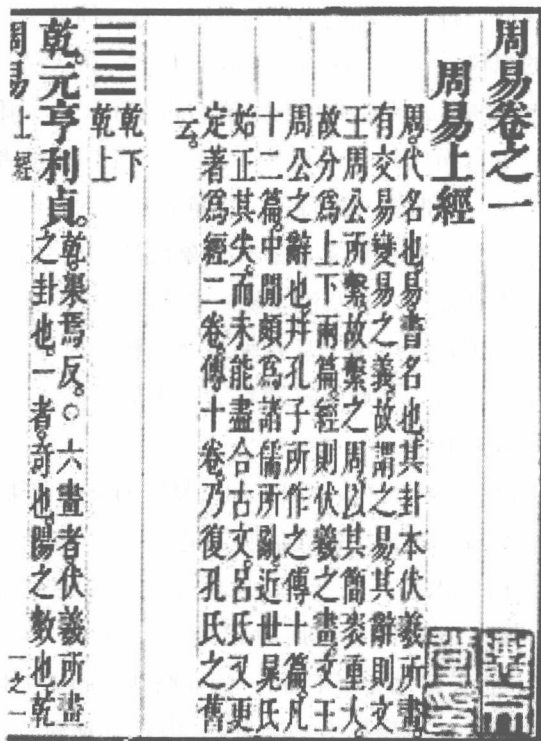 周易卷之一
周易上經
周。代名也。易。書名也。其卦本伏羲所畫。
有交易變易之義。故謂之易。其辭則文
王周公所繫。故繫之周。以其簡袠重大。
故分爲上下兩篇。經則伏羲之畫。文王
周公之辭也。并孔子所作之傳十篇。凡
十二篇。中閒頗爲諸儒所亂。近世晁氏
始正其失。而未能盡合古文。呂氏又更
定著爲經二卷。傳十卷。乃復孔氏之舊
云。
乾下
乾上
乾。元亨利貞。乾。渠焉反。○六畫者。伏羲所畫
之卦也。一者。奇也。陽之數也。乾
周易上經 一之一